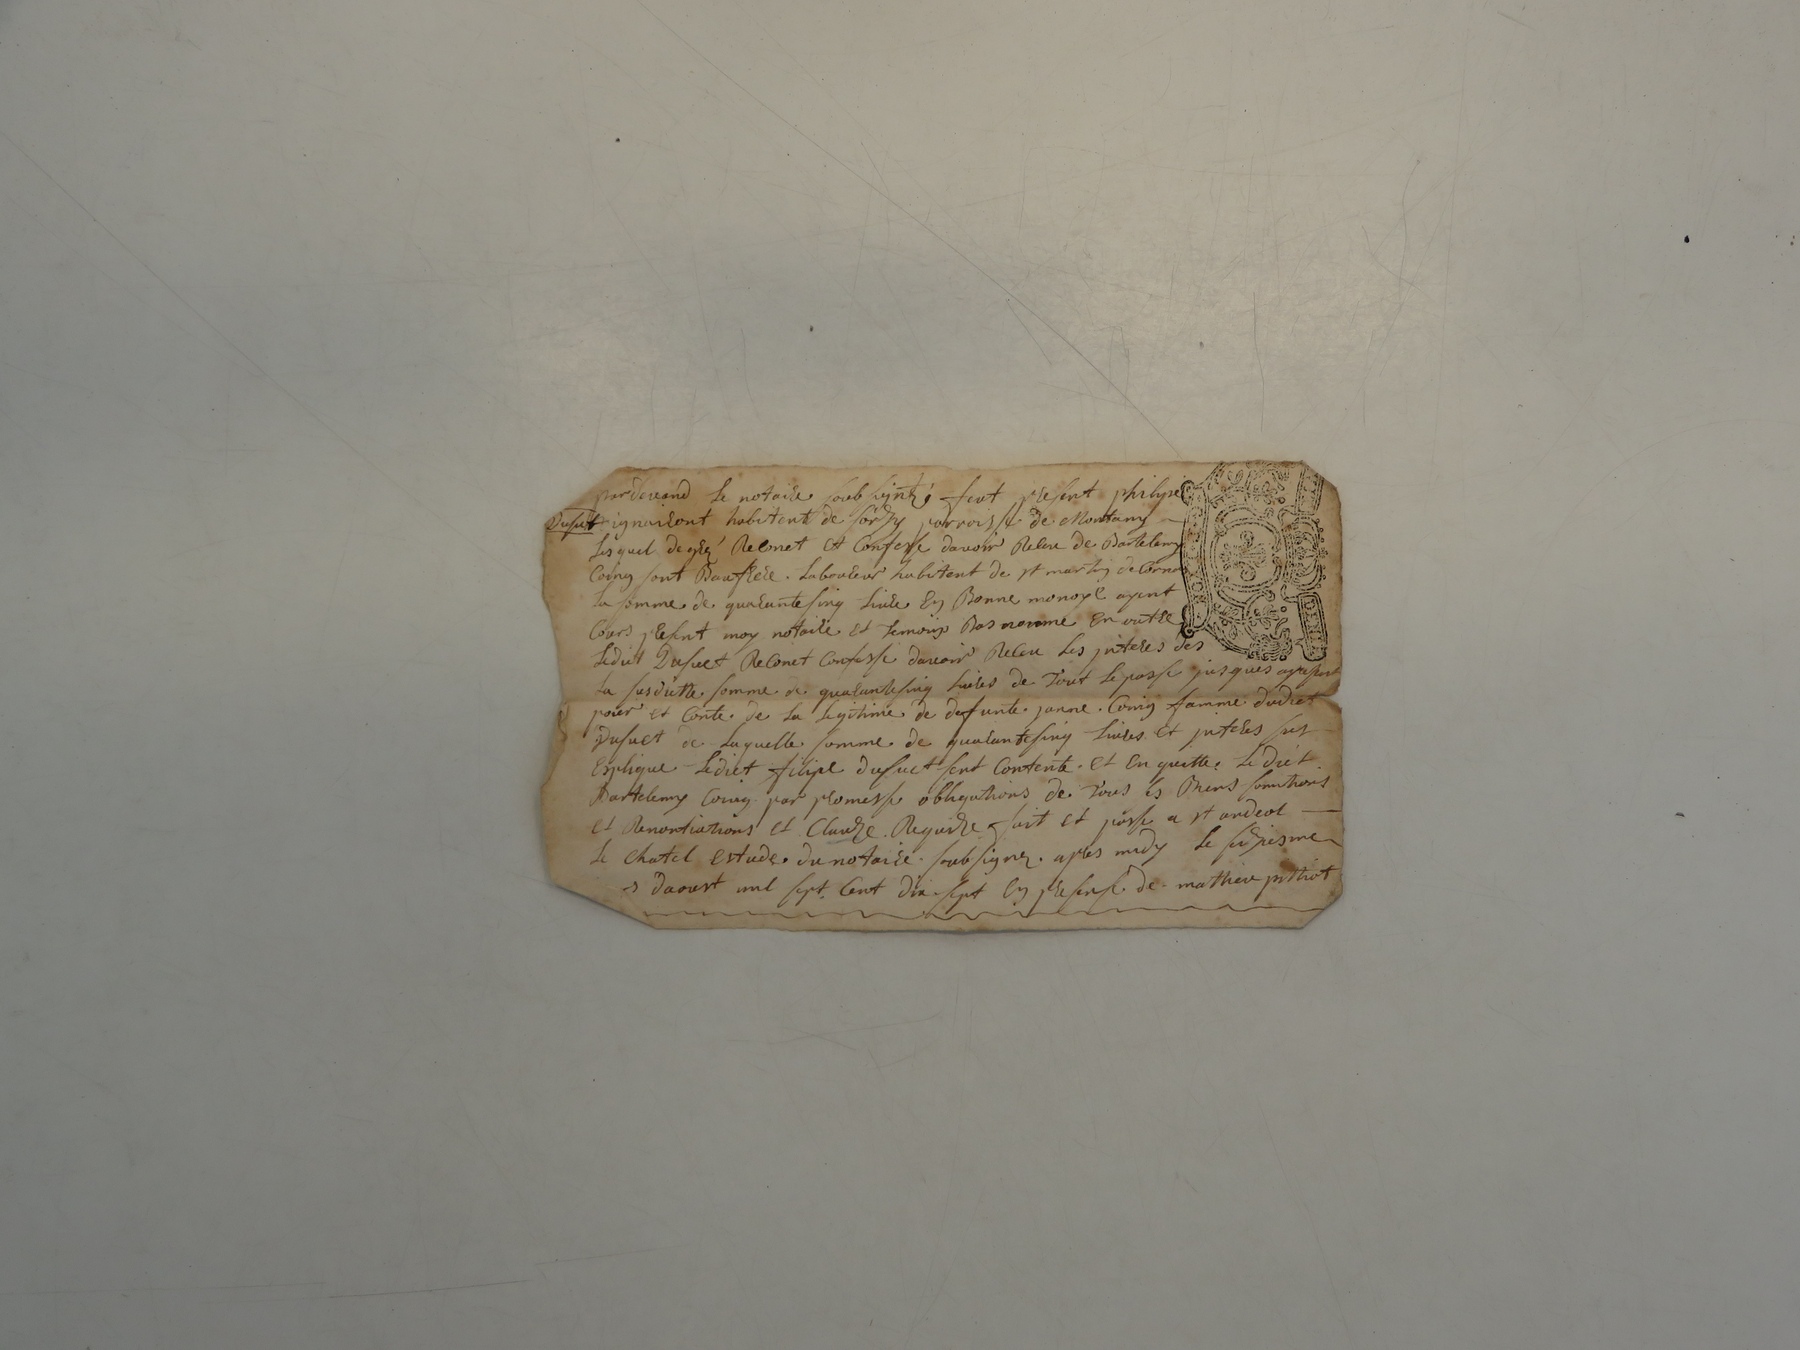 pardevand le notaire soubsigné feut présent philipe
Dufuet ignairont habitent de parroisse de Montany
lesquel de gré Reconet et Confesse davoir Receu de Bartelemy
Coing sont Baufrere. Laboureur habitent de st martin de Cornas
la somme de quarantesinq livre en Bonne monoye ayent
Cours presnt moy notaire et temoins Bas nomme En outre
ledict Dufuet Reconet Confesse davoir Receu les jnteres des
la susditte somme de quarantesinq livres de tout le passe jusques
pour et Conte de la legitime de defunte janne Coing famme dudict
Dufuet de laquelle somme de quarantesinq livres et jnteres sus
Explique ledict filipe dufuet sent Contente et En quitte le dict
Bartelemy Coing par promesse obligations de tous ses Biens
et Renontiations et Clauze Requize fait et passe a st andeol
le chatel estude du notaire soubsigner apres midy le
daoust mil sept Cent dix sept En presense de mathieu